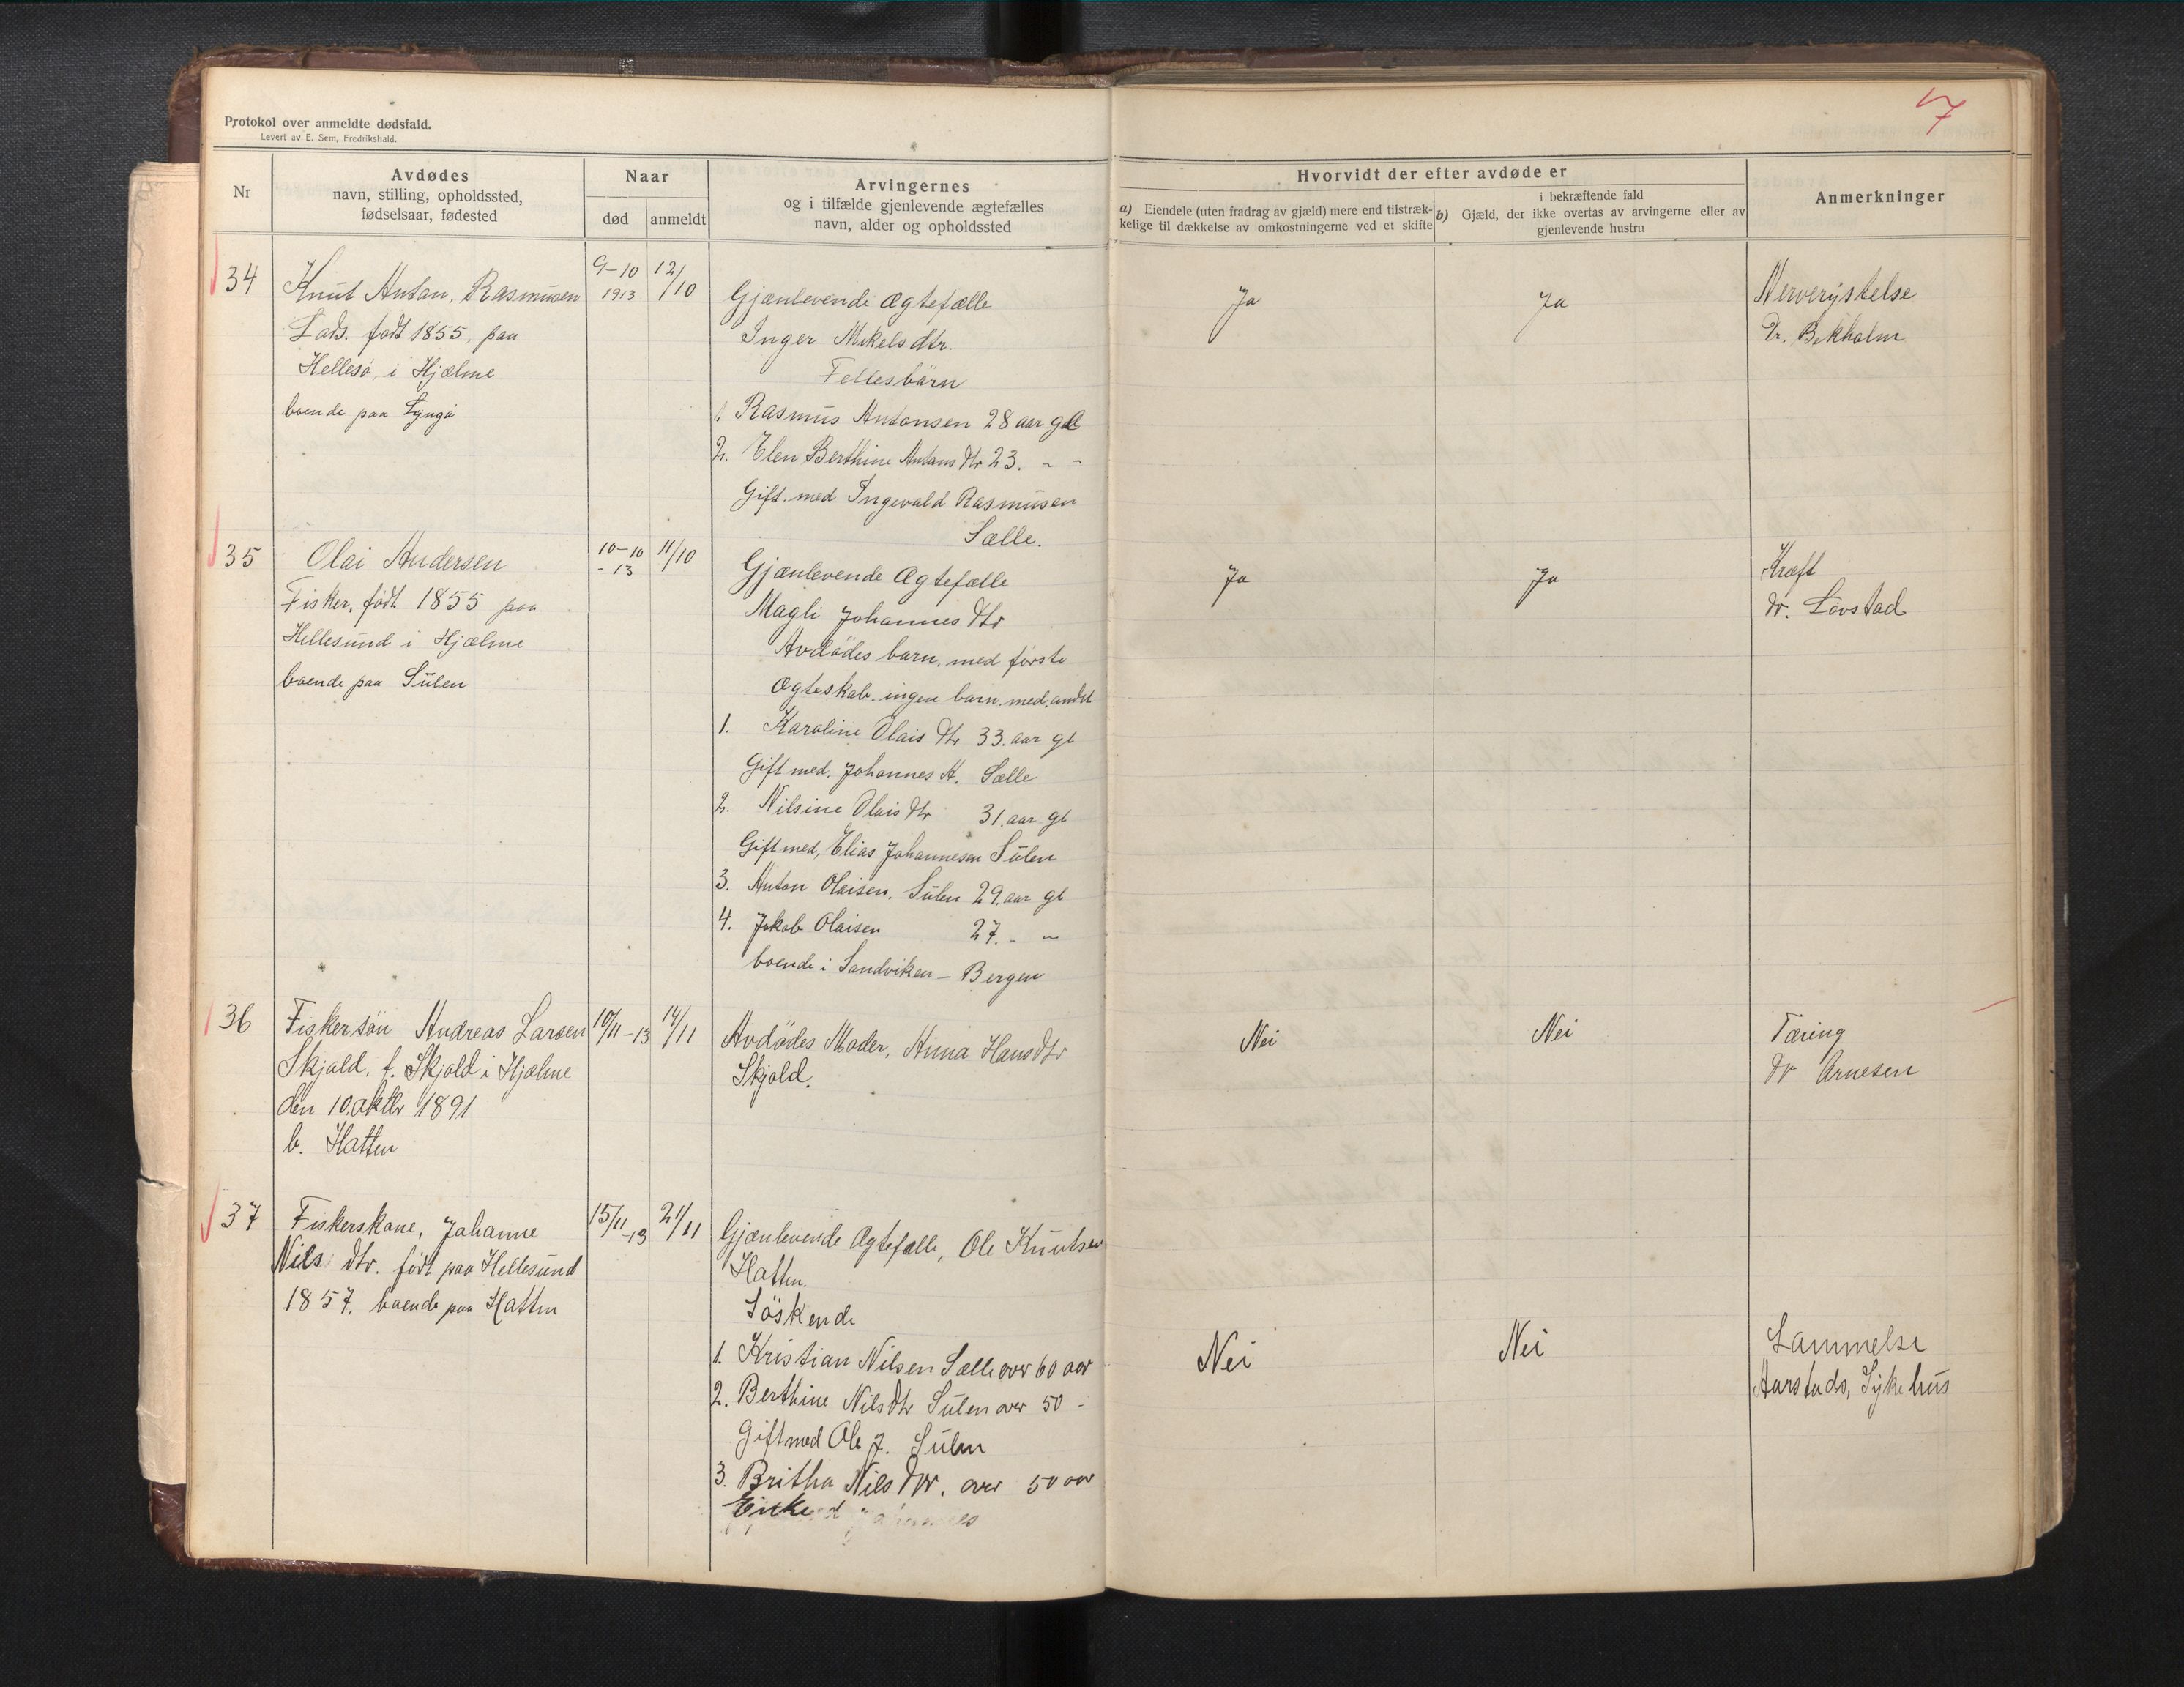 Protokol over anmeldte dødsfald.
Levert av E. Sem, Fredrikshald.
7
Nr
Avdødes
navn, stilling, opholdssted,
fødselsaar, fødested
Naar
død
anmeldt
Arvingernes
og i tilfælde gjenlevende ægtefælles
navn, alder og opholdssted
Hvorvidt der efter avdøde er
a) Eiendele (uten fradrag av gjæld) mere end tilstræk-
kelige til dækkelse av omkostningerne ved et skifte
i bekræftende fald
b) Gjæld, der ikke overtas av arvingerne eller av
gjenlevende hustru
Anmerkninger
34
Knut Anton, Rasmusen
Lods. født 1855, paa
Hellesö, i Hjælme
boende paa Lyngö
9-10
1913
12/10
Gjænlevende Ægtefælle
Inger Mikelsdtr.
Fellesbärn
1. Rasmus Antonsen 28 aar gal
2. Elen Berthine Antons dtr 23. - -
Gift. med Ingevald Rasmusen
Sælle.
Ja
Ja
Nerverystelse
Dr. Bekholm
35
Olai Andersen
Fisker, født 1855 paa
Hellesund i Hjælme
boende paa Sulen
10-10
- 13
11/10
Gjænlevende Ægtefælle
Magli Johannes dtr
Avdödes barn. med förste
Ægteskab. ingen barn. med. andet
1. Karoline Olais dtr 33. aar gl
Gift med. Johannes A. Sælle
2. Nilsine Olais dtr 31. aar gl
Gift med, Elias Johannesen Sulen
3. Anton Olaisen. Sulen 29. aar gl
4. Jakob Olaisen 27. - -
boende i Sandviken - Bergen
Ja
Ja
Kræft
dr. Lövstad
36
Fiskersön Andreas Larsen
Skjold. f. Skjold i Hjælme
den 10. oktbr 1891
b. Hatten
10/11-13
14/11
Avdödes Moder, Anna Hansdtr
Skjold.
Nei
Nei
Tæring
dr Arnesen
37
Fiskerskone, Johanne
Nils dtr. født paa Hellesund
1857. boende paa Hatten
15/11
-13
21/11
Gjænlevende Ægtefælle, Ole Knutsen
Hatten.
Söskende
1. Kristian Nilsen Sælle over 60 aar
2. Berthine Nils dtr Sulen over 50 -
Gift med Ole J. Sulen
3. Britha Nils dtr. over 50 aar
Enke
Nei
Nei
Lammelse
Aarstads, Sykehus